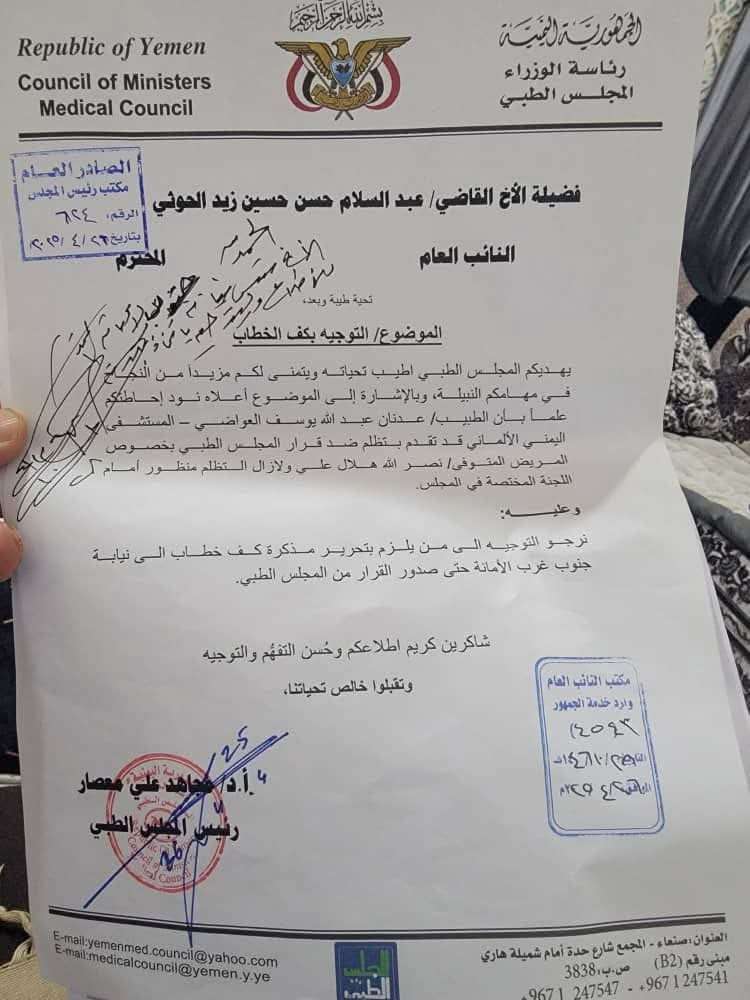 بسم الله الرحمن الرحيم
Republic of Yemen
Council of Ministers
Medical Council
الجمهورية اليمنية
رئاسة الوزراء
المجلس الطبي
الصادر العام
مكتب رئيس المجلس
الرقم: ٦٢٤
بتاريخ ٢٦ / ٤ / ٢٠٢٥
فضيلة الأخ القاضي/ عبد السلام حسن حسين زيد الحوثي
النائب العام المحترم
تحية طيبة وبعد،
الموضوع/ التوجيه بكف الخطاب
يهديكم المجلس الطبي اطيب تحياته ويتمنى لكم مزيداً من النجاح
في مهامكم النبيلة، وبالإشارة إلى الموضوع أعلاه نود إحاطتكم
علماً بأن الطبيب/ عدنان عبد الله يوسف العواضي – المستشفى
اليمني الألماني قد تقدم بتظلم ضد قرار المجلس الطبي بخصوص
المريض المتوفى/ نصر الله هلال علي ولازال التظلم منظور أمام
اللجنة المختصة في المجلس.
وعليه:
نرجو التوجيه الى من يلزم بتحرير مذكرة كف خطاب الى نيابة
جنوب غرب الأمانة حتى صدور القرار من المجلس الطبي.
شاكرين كريم اطلاعكم وحُسن التفهُم والتوجيه
وتقبلوا خالص تحياتنا،
مكتب النائب العام
وارد خدمة الجمهور
25
أ.د/ مجاهد علي معصار
رئيس المجلس الطبي
26
E-mail:yemenmed.council@yahoo.com
E-mail:medicalcouncil@yemen.y.ye
المجلس
الطبي
العنوان: صنعاء - المجمع شارع حدة أمام شميلة هاري
مبنى رقم (B2) ص.ب: 3838
+967 1 247547 - +967 1 247541